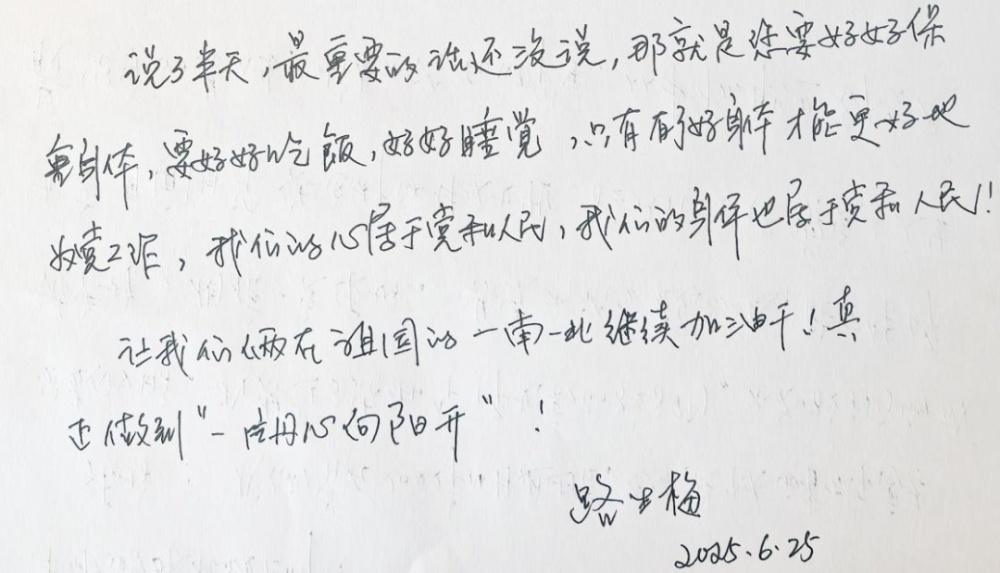 说了半天,最重要的话还没说,那就是您要好好保
重身体,要好好吃饭,好好睡觉,只有有了好身体才能更好地
为党工作,我们的心属于党和人民,我们的身体也属于党和人民!
让我们俩在祖国的一南一北继续加油干!真
正做到“一片丹心向阳开”!
路生梅
2025.6.25